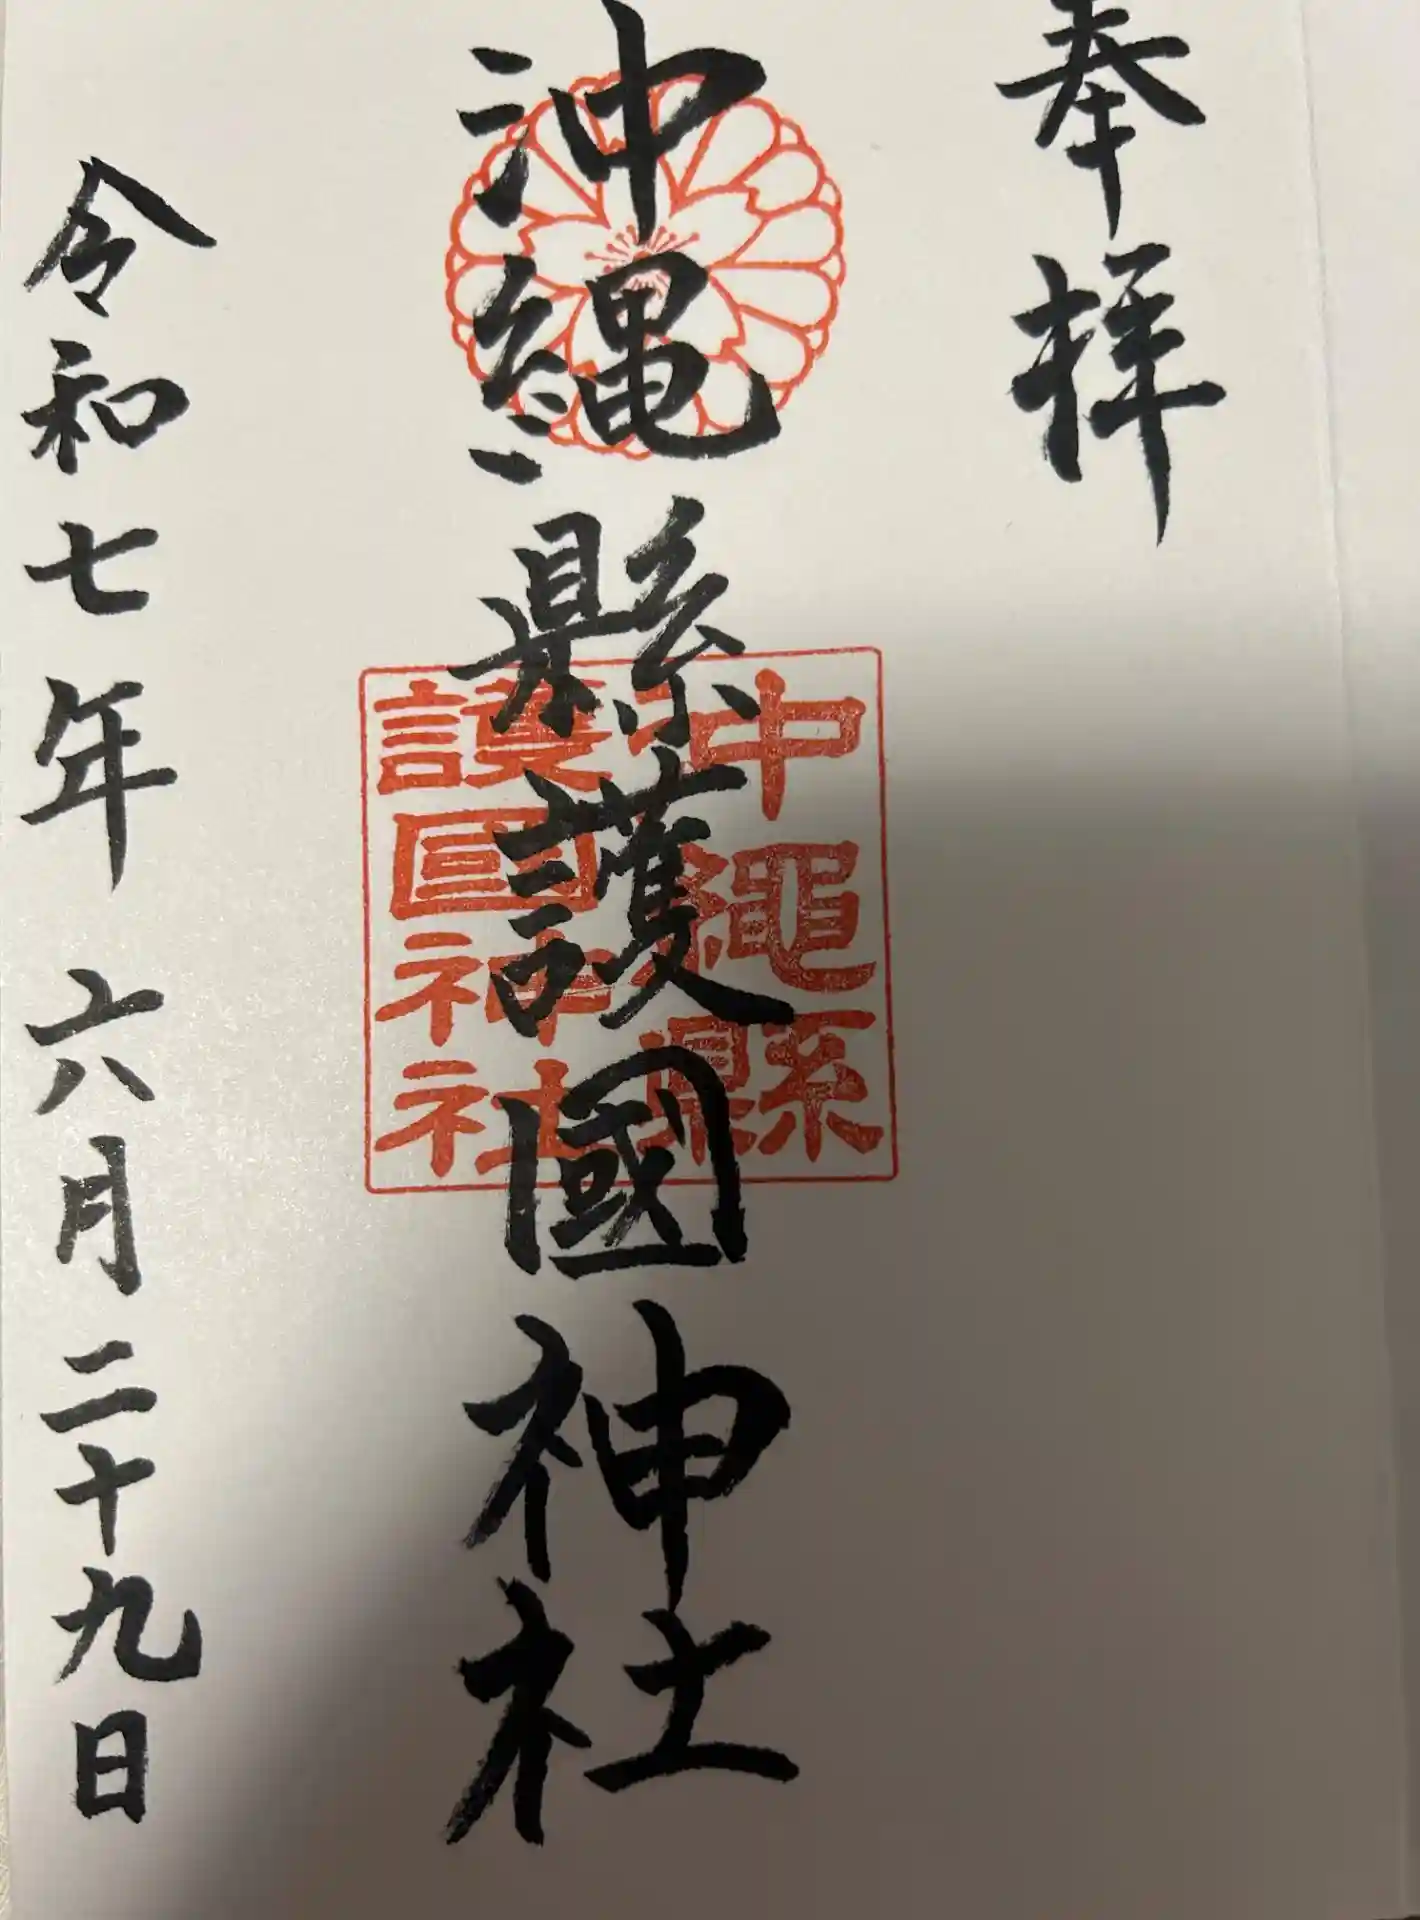 奉拝
沖縄縣護國神社
沖繩縣
護國神社
令和七年六月二十九日